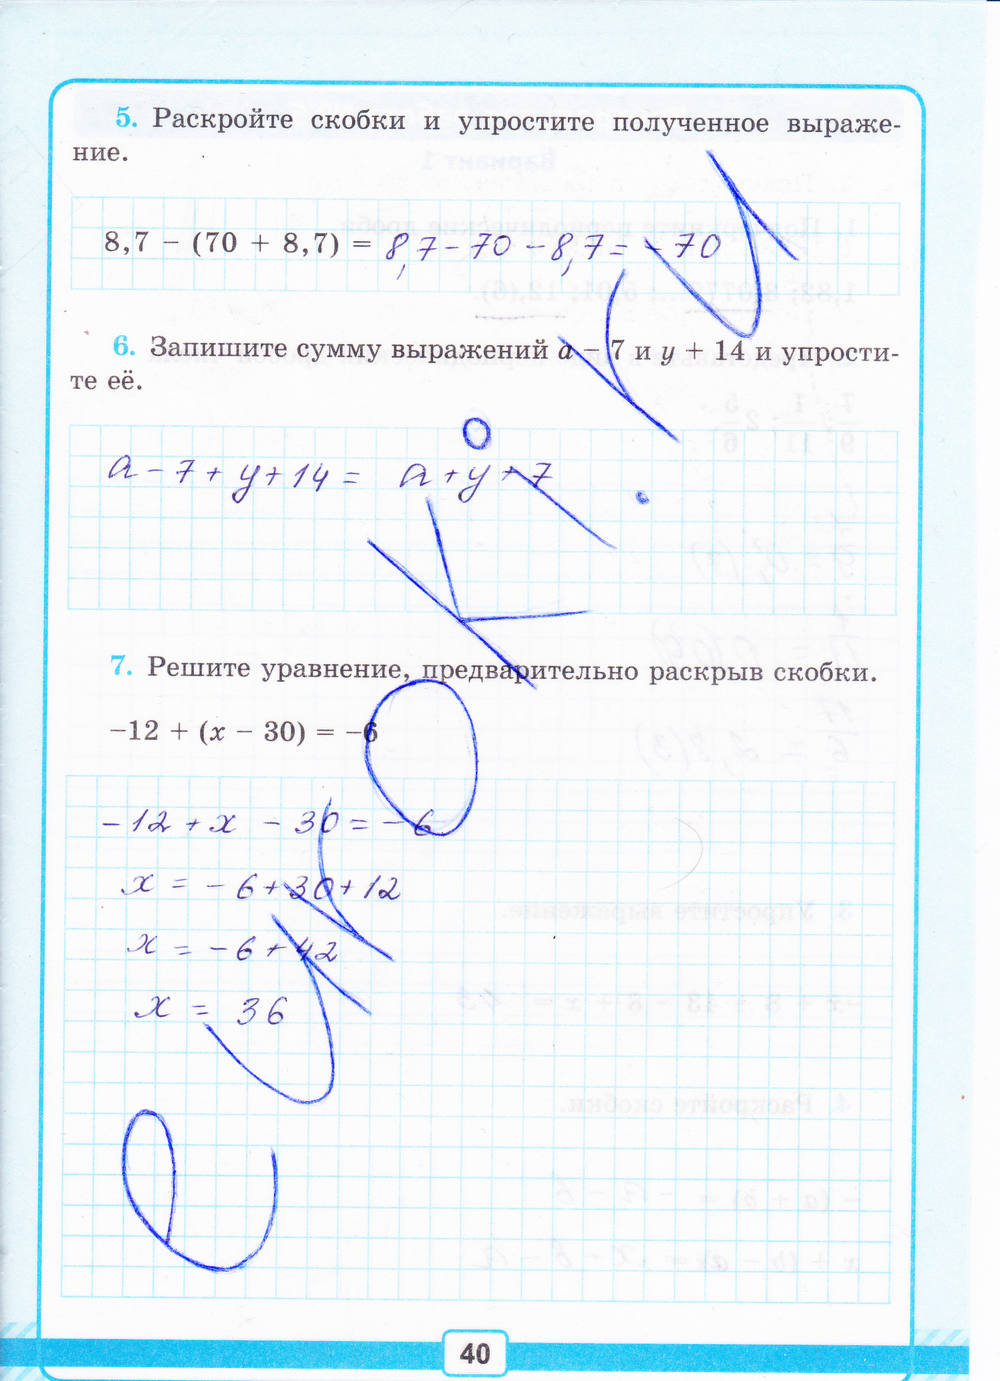 5. Раскройте скобки и упростите полученное выраже-
ние.
8,7 − (70 + 8,7) = 8,7 - 70 - 8,7 = -70
6. Запишите сумму выражений a − 7 и y + 14 и упрости-
те её.
a - 7 + y + 14 = a + y + 7
7. Решите уравнение, предварительно раскрыв скобки.
−12 + (x − 30) = −6
-12 + x - 30 = -6
x = -6 + 30 + 12
x = -6 + 42
x = 36
eyroki.ru
40